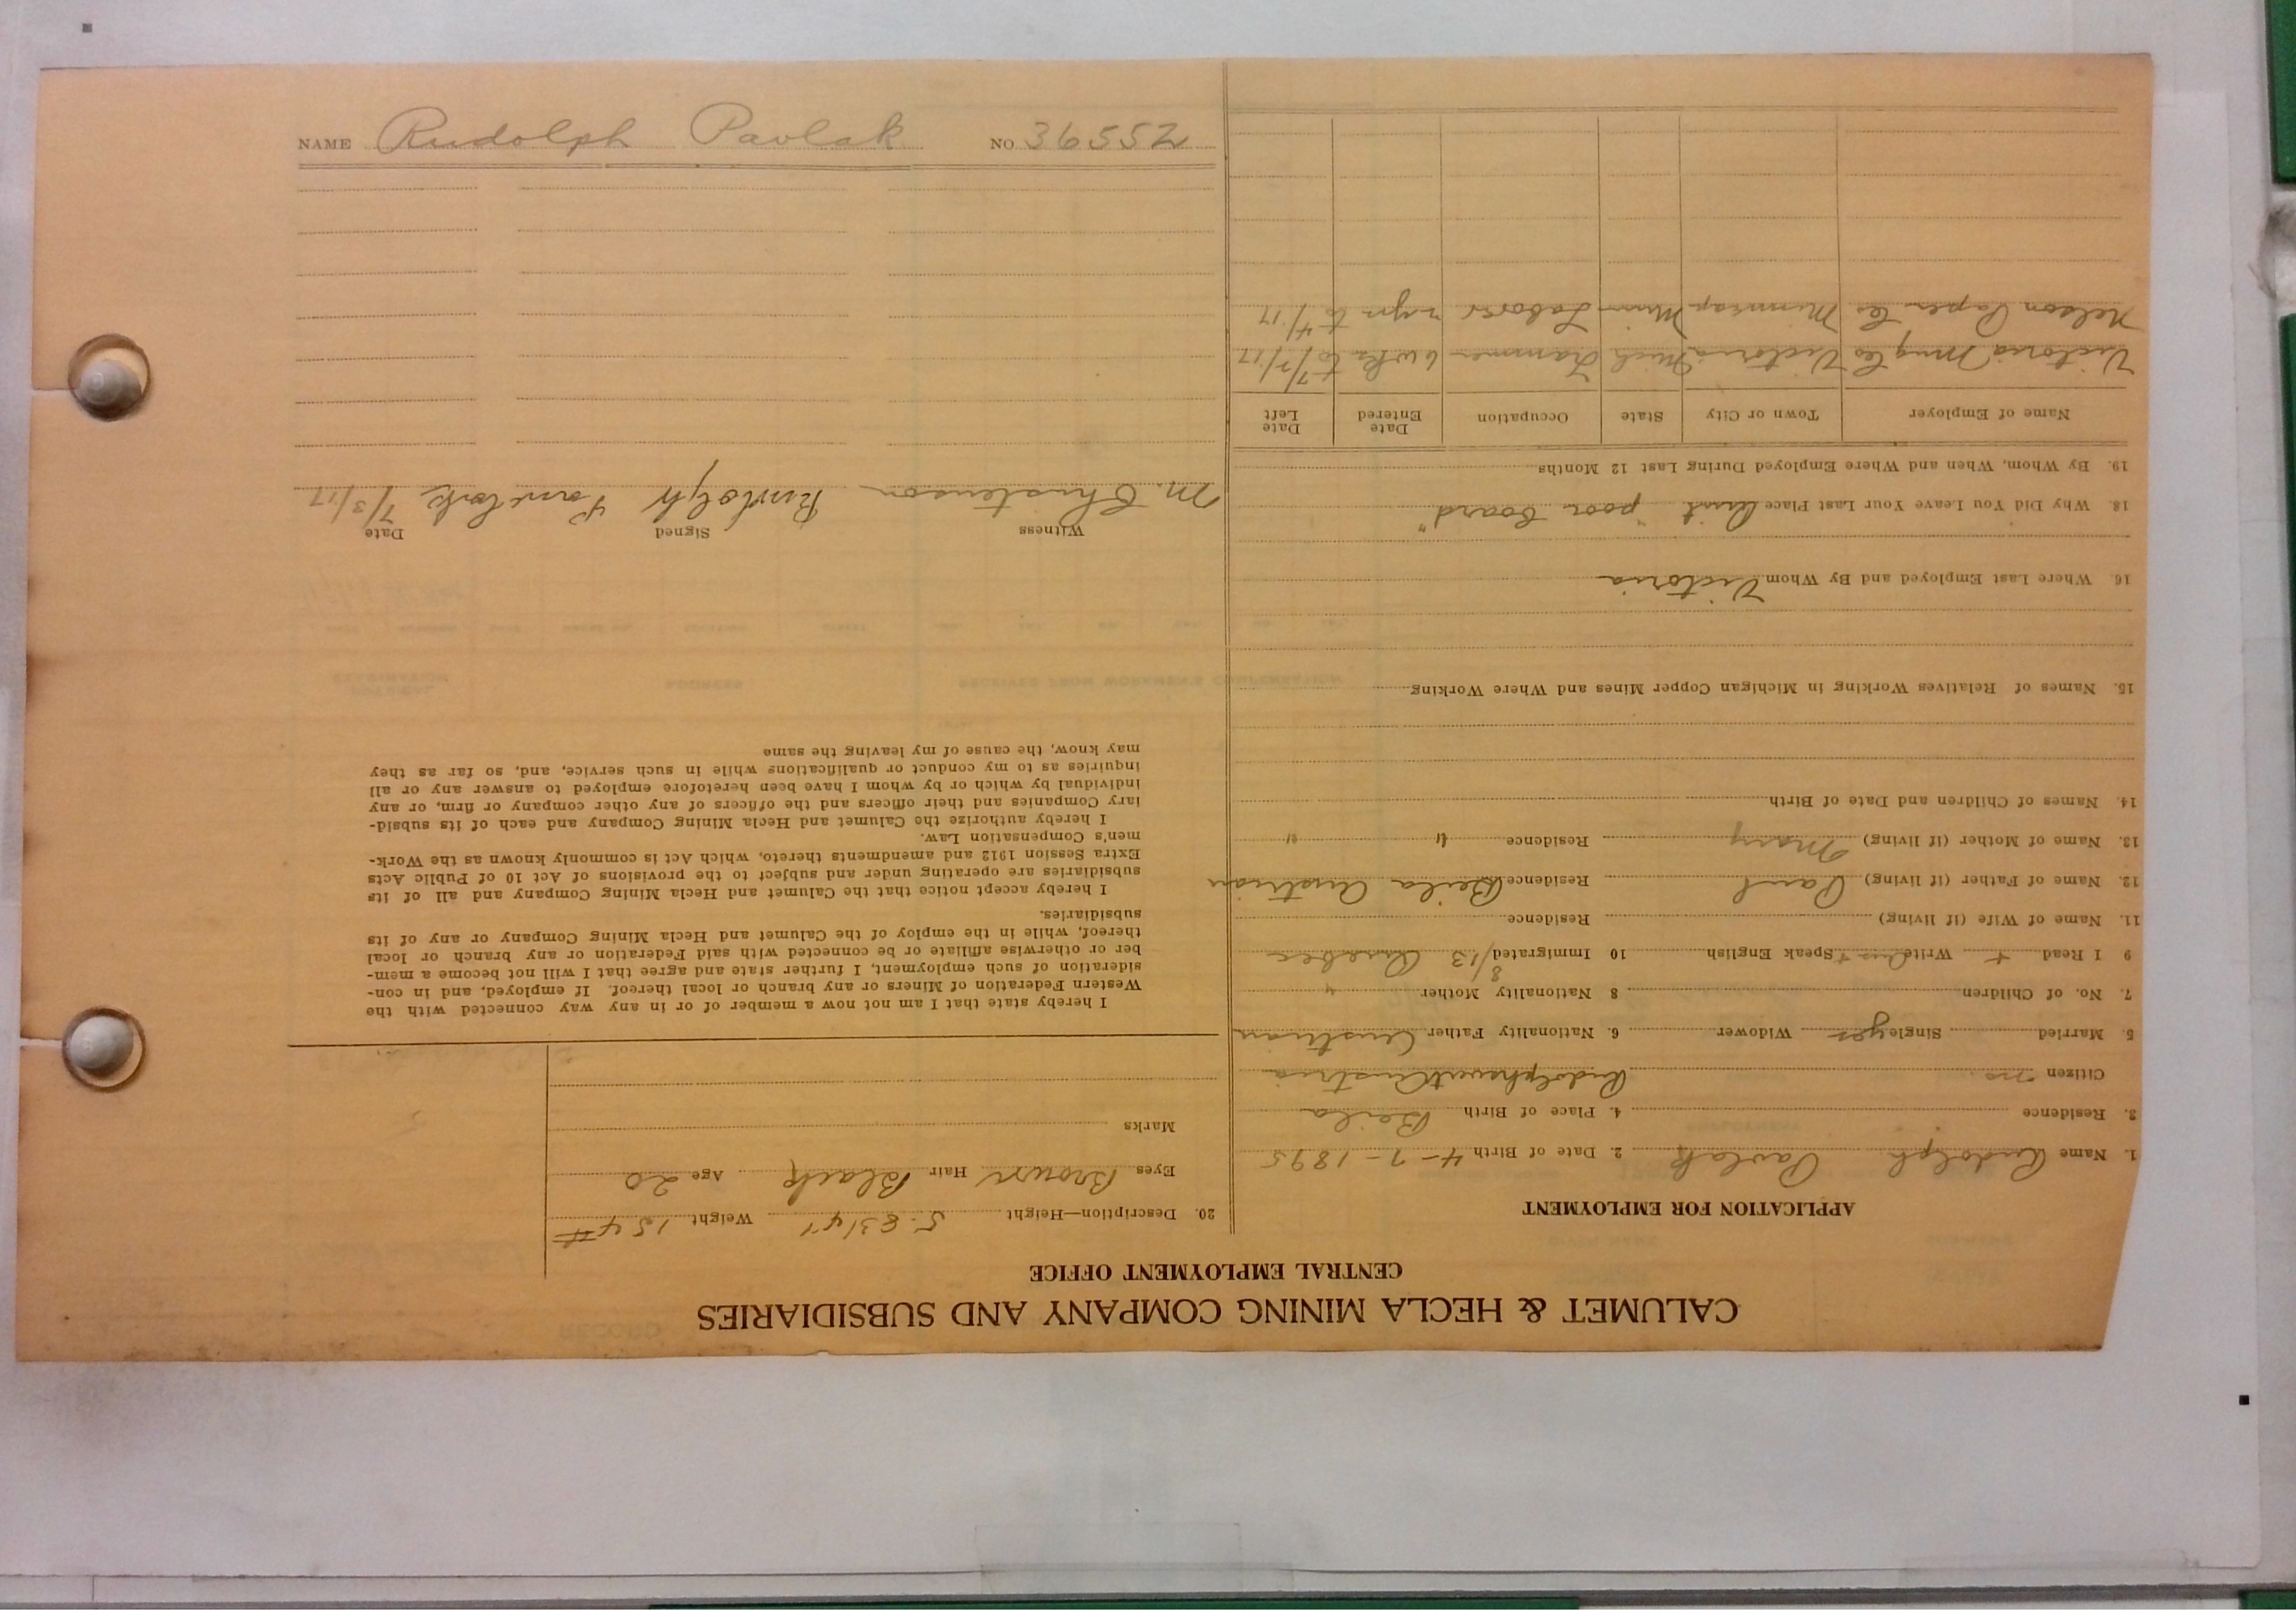 CALUMET & HECLA MINING COMPANY AND SUBSIDIARIES
CENTRAL EMPLOYMENT OFFICE
APPLICATION FOR EMPLOYMENT
1. Name Rudolph Pavlak 2. Date of Birth 4-7-1895
3. Residence 4. Place of Birth Beila
Citizen no Austria
5. Married Single yes Widower 6. Nationality Father Austrian
7. No. of Children 8 Nationality Mother "
9 I Read + Write Speak English 10 Immigrated 8/13
11. Name of Wife (if living) Residence
12. Name of Father (if living) Paul Residence Beila Austrian
13. Name of Mother (if living) Mary Residence " "
14. Names of Children and Date of Birth
15. Names of Relatives Working in Michigan Copper Mines and Where Working
16. Where Last Employed and By Whom Victoria
18. Why Did You Leave Your Last Place "poor board"
19. By Whom, When and Where Employed During Last 12 Months
Name of Employer Town or City State Occupation Date Entered Date Left
Victoria Mng Co Victoria Mich Trammer 6 wks to 7/2/17
Nelson Paper Co Minneap Minn Laborer 2 yrs to 4/17
20. Description—Height 5. 8 3/4" Weight 154#
Eyes Brown Hair Black Age 20
Marks
I hereby state that I am not now a member of or in any way connected with the
Western Federation of Miners or any branch or local thereof. If employed, and in con-
sideration of such employment, I further state and agree that I will not become a mem-
ber or otherwise affiliate or be connected with said Federation or any branch or local
thereof, while in the employ of the Calumet and Hecla Mining Company or any of its
subsidiaries.
I hereby accept notice that the Calumet and Hecla Mining Company and all of its
subsidiaries are operating under and subject to the provisions of Act 10 of Public Acts
Extra Session 1912 and amendments thereto, which Act is commonly known as the Work-
men's Compensation Law.
I hereby authorize the Calumet and Hecla Mining Company and each of its subsid-
iary Companies and their officers and the officers of any other company or firm, or any
individual by which or by whom I have been heretofore employed to answer any or all
inquiries as to my conduct or qualifications while in such service, and, so far as they
may know, the cause of my leaving the same
Witness Signed Date
M. Christenson Rudolph 7/3/17
NAME Rudolph Pavlak NO 36552